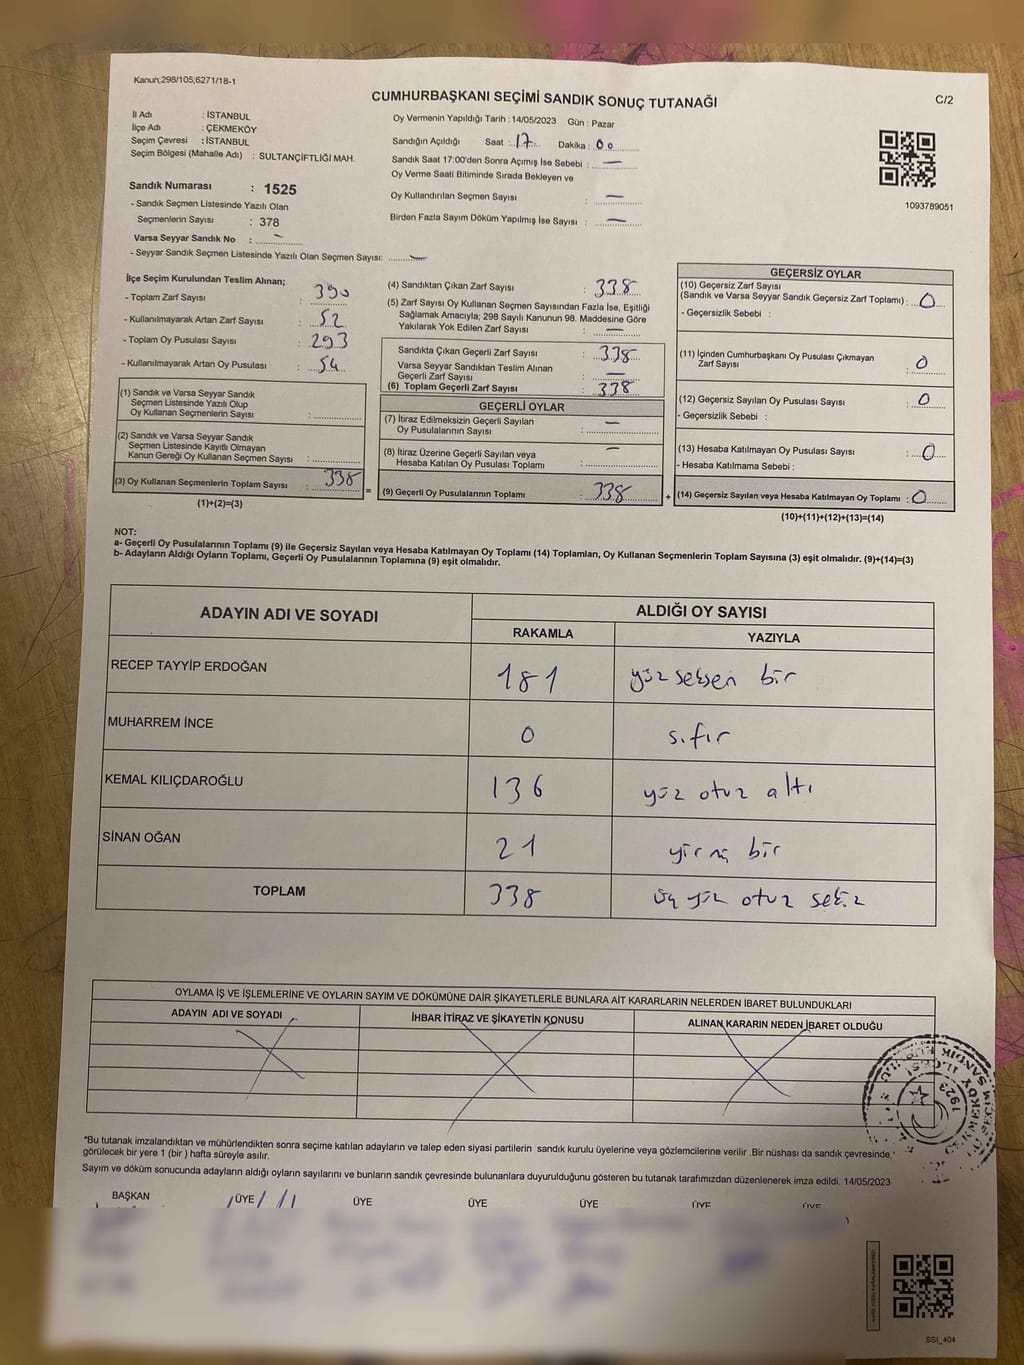 Kanun;298/105;6271/18-1
CUMHURBAŞKANI SEÇİMİ SANDIK SONUÇ TUTANAĞI
C/2
İl Adı : İSTANBUL
İlçe Adı : ÇEKMEKÖY
Seçim Çevresi : İSTANBUL
Seçim Bölgesi (Mahalle Adı) : SULTANÇİFTLİĞİ MAH.
Sandık Numarası : 1525
- Sandık Seçmen Listesinde Yazılı Olan
Seçmenlerin Sayısı : 378
Varsa Seyyar Sandık No : –
- Seyyar Sandık Seçmen Listesinde Yazılı Olan Seçmen Sayısı: –
Oy Vermenin Yapıldığı Tarih : 14/05/2023 Gün : Pazar
Sandığın Açıldığı Saat : 17 Dakika : 00
Sandık Saat 17:00'den Sonra Açımış İse Sebebi : –
Oy Verme Saati Bitiminde Sırada Bekleyen ve
Oy Kullandırılan Seçmen Sayısı : –
Birden Fazla Sayım Döküm Yapılmış İse Sayısı : –
1093789051
İlçe Seçim Kurulundan Teslim Alınan;
- Toplam Zarf Sayısı : 390
- Kullanılmayarak Artan Zarf Sayısı : 52
- Toplam Oy Pusulası Sayısı : 293
- Kullanılmayarak Artan Oy Pusulası : 54
(1) Sandık ve Varsa Seyyar Sandık
Seçmen Listesinde Yazılı Olup
Oy Kullanan Seçmenlerin Sayısı :
(2) Sandık ve Varsa Seyyar Sandık
Seçmen Listesinde Kayıtlı Olmayan
Kanun Gereği Oy Kullanan Seçmen Sayısı :
(3) Oy Kullanan Seçmenlerin Toplam Sayısı : 338
(1)+(2)=(3)
(4) Sandıktan Çıkan Zarf Sayısı : 338
(5) Zarf Sayısı Oy Kullanan Seçmen Sayısından Fazla İse, Eşitliği
Sağlamak Amacıyla; 298 Sayılı Kanunun 98. Maddesine Göre
Yakılarak Yok Edilen Zarf Sayısı : –
Sandıkta Çıkan Geçerli Zarf Sayısı : 338
Varsa Seyyar Sandıktan Teslim Alınan
Geçerli Zarf Sayısı : –
(6) Toplam Geçerli Zarf Sayısı : 338
GEÇERLİ OYLAR
(7) İtiraz Edilmeksizin Geçerli Sayılan
Oy Pusulalarının Sayısı : –
(8) İtiraz Üzerine Geçerli Sayılan veya
Hesaba Katılan Oy Pusulası Toplamı : –
(9) Geçerli Oy Pusulalarının Toplamı : 338
GEÇERSİZ OYLAR
(10) Geçersiz Zarf Sayısı
(Sandık ve Varsa Seyyar Sandık Geçersiz Zarf Toplamı) : 0
- Geçersizlik Sebebi :
(11) İçinden Cumhurbaşkanı Oy Pusulası Çıkmayan
Zarf Sayısı : 0
(12) Geçersiz Sayılan Oy Pusulası Sayısı : 0
- Geçersizlik Sebebi :
(13) Hesaba Katılmayan Oy Pusulası Sayısı : 0
- Hesaba Katılmama Sebebi :
(14) Geçersiz Sayılan veya Hesaba Katılmayan Oy Toplamı : 0
(10)+(11)+(12)+(13)=(14)
NOT:
a- Geçerli Oy Pusulalarının Toplamı (9) ile Geçersiz Sayılan veya Hesaba Katılmayan Oy Toplamı (14) Toplamları, Oy Kullanan Seçmenlerin Toplam Sayısına (3) eşit olmalıdır. (9)+(14)=(3)
b- Adayların Aldığı Oyların Toplamı, Geçerli Oy Pusulalarının Toplamına (9) eşit olmalıdır.
ADAYIN ADI VE SOYADI ALDIĞI OY SAYISI
RAKAMLA YAZIYLA
RECEP TAYYİP ERDOĞAN 181 yüz seksen bir
MUHARREM İNCE 0 sıfır
KEMAL KILIÇDAROĞLU 136 yüz otuz altı
SİNAN OĞAN 21 yirmi bir
TOPLAM 338 üç yüz otuz sekiz
OYLAMA İŞ VE İŞLEMLERİNE VE OYLARIN SAYIM VE DÖKÜMÜNE DAİR ŞİKAYETLERLE BUNLARA AİT KARARLARIN NELERDEN İBARET BULUNDUKLARI
ADAYIN ADI VE SOYADI İHBAR İTİRAZ VE ŞİKAYETİN KONUSU ALINAN KARARIN NEDEN İBARET OLDUĞU
*Bu tutanak imzalandıktan ve mühürlendikten sonra seçime katılan adayların ve talep eden siyasi partilerin sandık kurulu üyelerine veya gözlemcilerine verilir .Bir nüshası da sandık çevresinde,
görülecek bir yere 1 (bir ) hafta süreyle asılır.
Sayım ve döküm sonucunda adayların aldığı oyların sayılarını ve bunların sandık çevresinde bulunanlara duyurulduğunu gösteren bu tutanak tarafımızdan düzenlenerek imza edildi. 14/05/2023
BAŞKAN ÜYE ÜYE ÜYE ÜYE ÜYE ÜYE
1923
ÇEKMEKÖY İLÇESİ
SSI_404